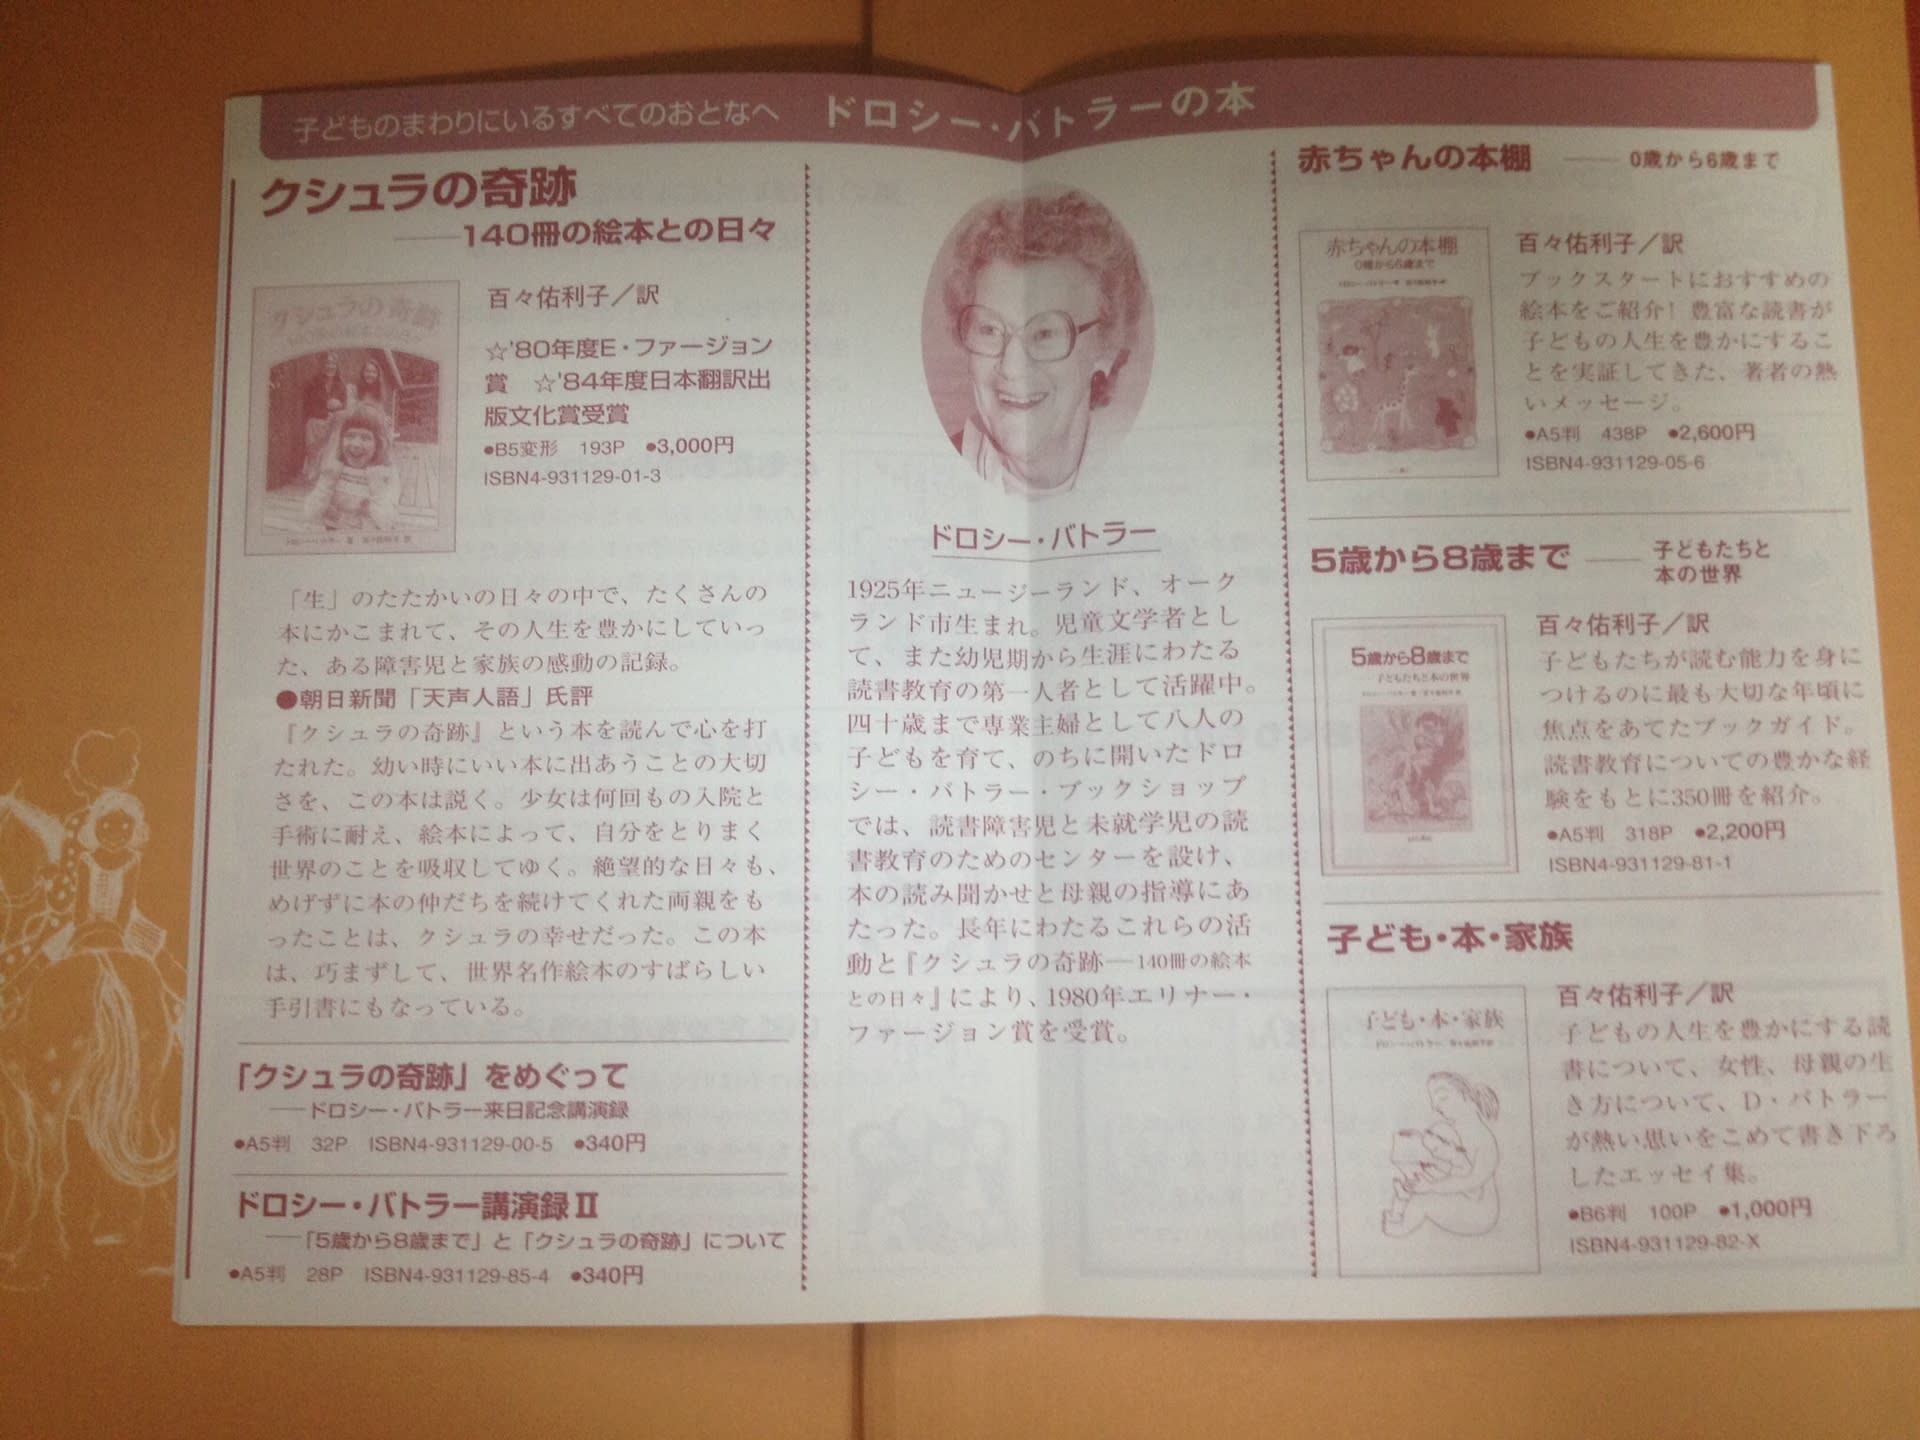 子どものまわりにいるすべてのおとなへ　ドロシー・バトラーの本
クシュラの奇跡
――140冊の絵本との日々
クシュラの奇跡
ドロシー・バトラー 著 百々佑利子 訳
百々佑利子／訳
☆'80年度E・ファージョン
賞　☆'84年度日本翻訳出
版文化賞受賞
●B5変形　193P　●3,000円
ISBN4-931129-01-3
「生」のたたかいの日々の中で、たくさんの
本にかこまれて、その人生を豊かにしていっ
た、ある障害児と家族の感動の記録。
●朝日新聞「天声人語」氏評
『クシュラの奇跡』という本を読んで心を打
たれた。幼い時にいい本に出あうことの大切
さを、この本は説く。少女は何回もの入院と
手術に耐え、絵本によって、自分をとりまく
世界のことを吸収してゆく。絶望的な日々も、
めげずに本の仲だちを続けてくれた両親をも
ったことは、クシュラの幸せだった。この本
は、巧まずして、世界名作絵本のすばらしい
手引書にもなっている。
「クシュラの奇跡」をめぐって
――ドロシー・バトラー来日記念講演録
●A5判　32P　ISBN4-931129-00-5　●340円
ドロシー・バトラー講演録Ⅱ
――「5歳から8歳まで」と「クシュラの奇跡」について
●A5判　28P　ISBN4-931129-85-4　●340円
ドロシー・バトラー
1925年ニュージーランド、オーク
ランド市生まれ。児童文学者とし
て、また幼児期から生涯にわたる
読書教育の第一人者として活躍中。
四十歳まで専業主婦として八人の
子どもを育て、のちに開いたドロ
シー・バトラー・ブックショップ
では、読書障害児と未就学児の読
書教育のためのセンターを設け、
本の読み聞かせと母親の指導にあ
たった。長年にわたるこれらの活
動と『クシュラの奇跡―140冊の絵本
との日々』により、1980年エリナー・
ファージョン賞を受賞。
赤ちゃんの本棚　――0歳から6歳まで
赤ちゃんの本棚
0歳から6歳まで
百々佑利子／訳
ブックスタートにおすすめの
絵本をご紹介！豊富な読書が
子どもの人生を豊かにするこ
とを実証してきた、著者の熱
いメッセージ。
●A5判　438P　●2,600円
ISBN4-931129-05-6
5歳から8歳まで　――子どもたちと
本の世界
5歳から8歳まで
子どもたちと本の世界
百々佑利子／訳
子どもたちが読む能力を身に
つけるのに最も大切な年頃に
焦点をあてたブックガイド。
読書教育についての豊かな経
験をもとに350冊を紹介。
●A5判　318P　●2,200円
ISBN4-931129-81-1
子ども・本・家族
子ども・本・家族
百々佑利子／訳
子どもの人生を豊かにする読
書について、女性、母親の生
き方について、D・バトラー
が熱い思いをこめて書き下ろ
したエッセイ集。
●B6判　100P　●1,000円
ISBN4-931129-82-X